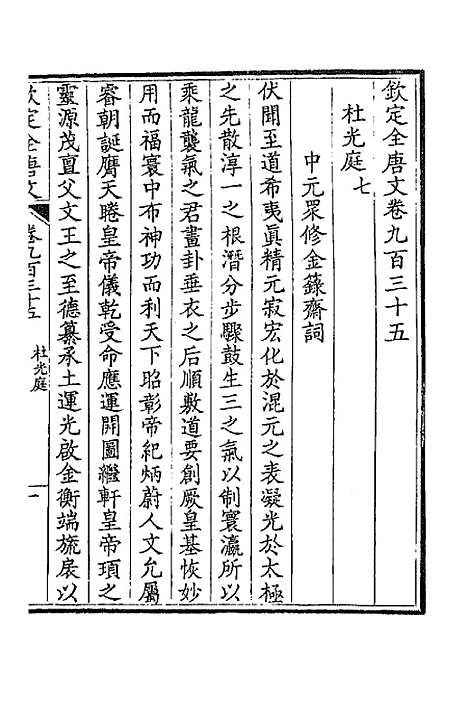 欽定全唐文卷九百三十五
杜光庭七
中元眾修金籙齋詞
伏聞至道希夷眞精元寂宏化於混元之表凝光於太極
之先散淳一之根潛分步驟鼓生三之氣以制寰瀛所以
乘龍襲氣之君畫卦垂衣之后順敷道要創厥皇基恢妙
用而福寰中布神功而利天下昭彰帝紀炳蔚人文允屬
睿朝誕膺天睠皇帝儀乾受命應運開圖繼軒皇帝頊之
靈源茂亶父文王之至德纂承土運光啟金衡端旒扆以
欽定全唐文
卷九百三十五
杜光庭
一